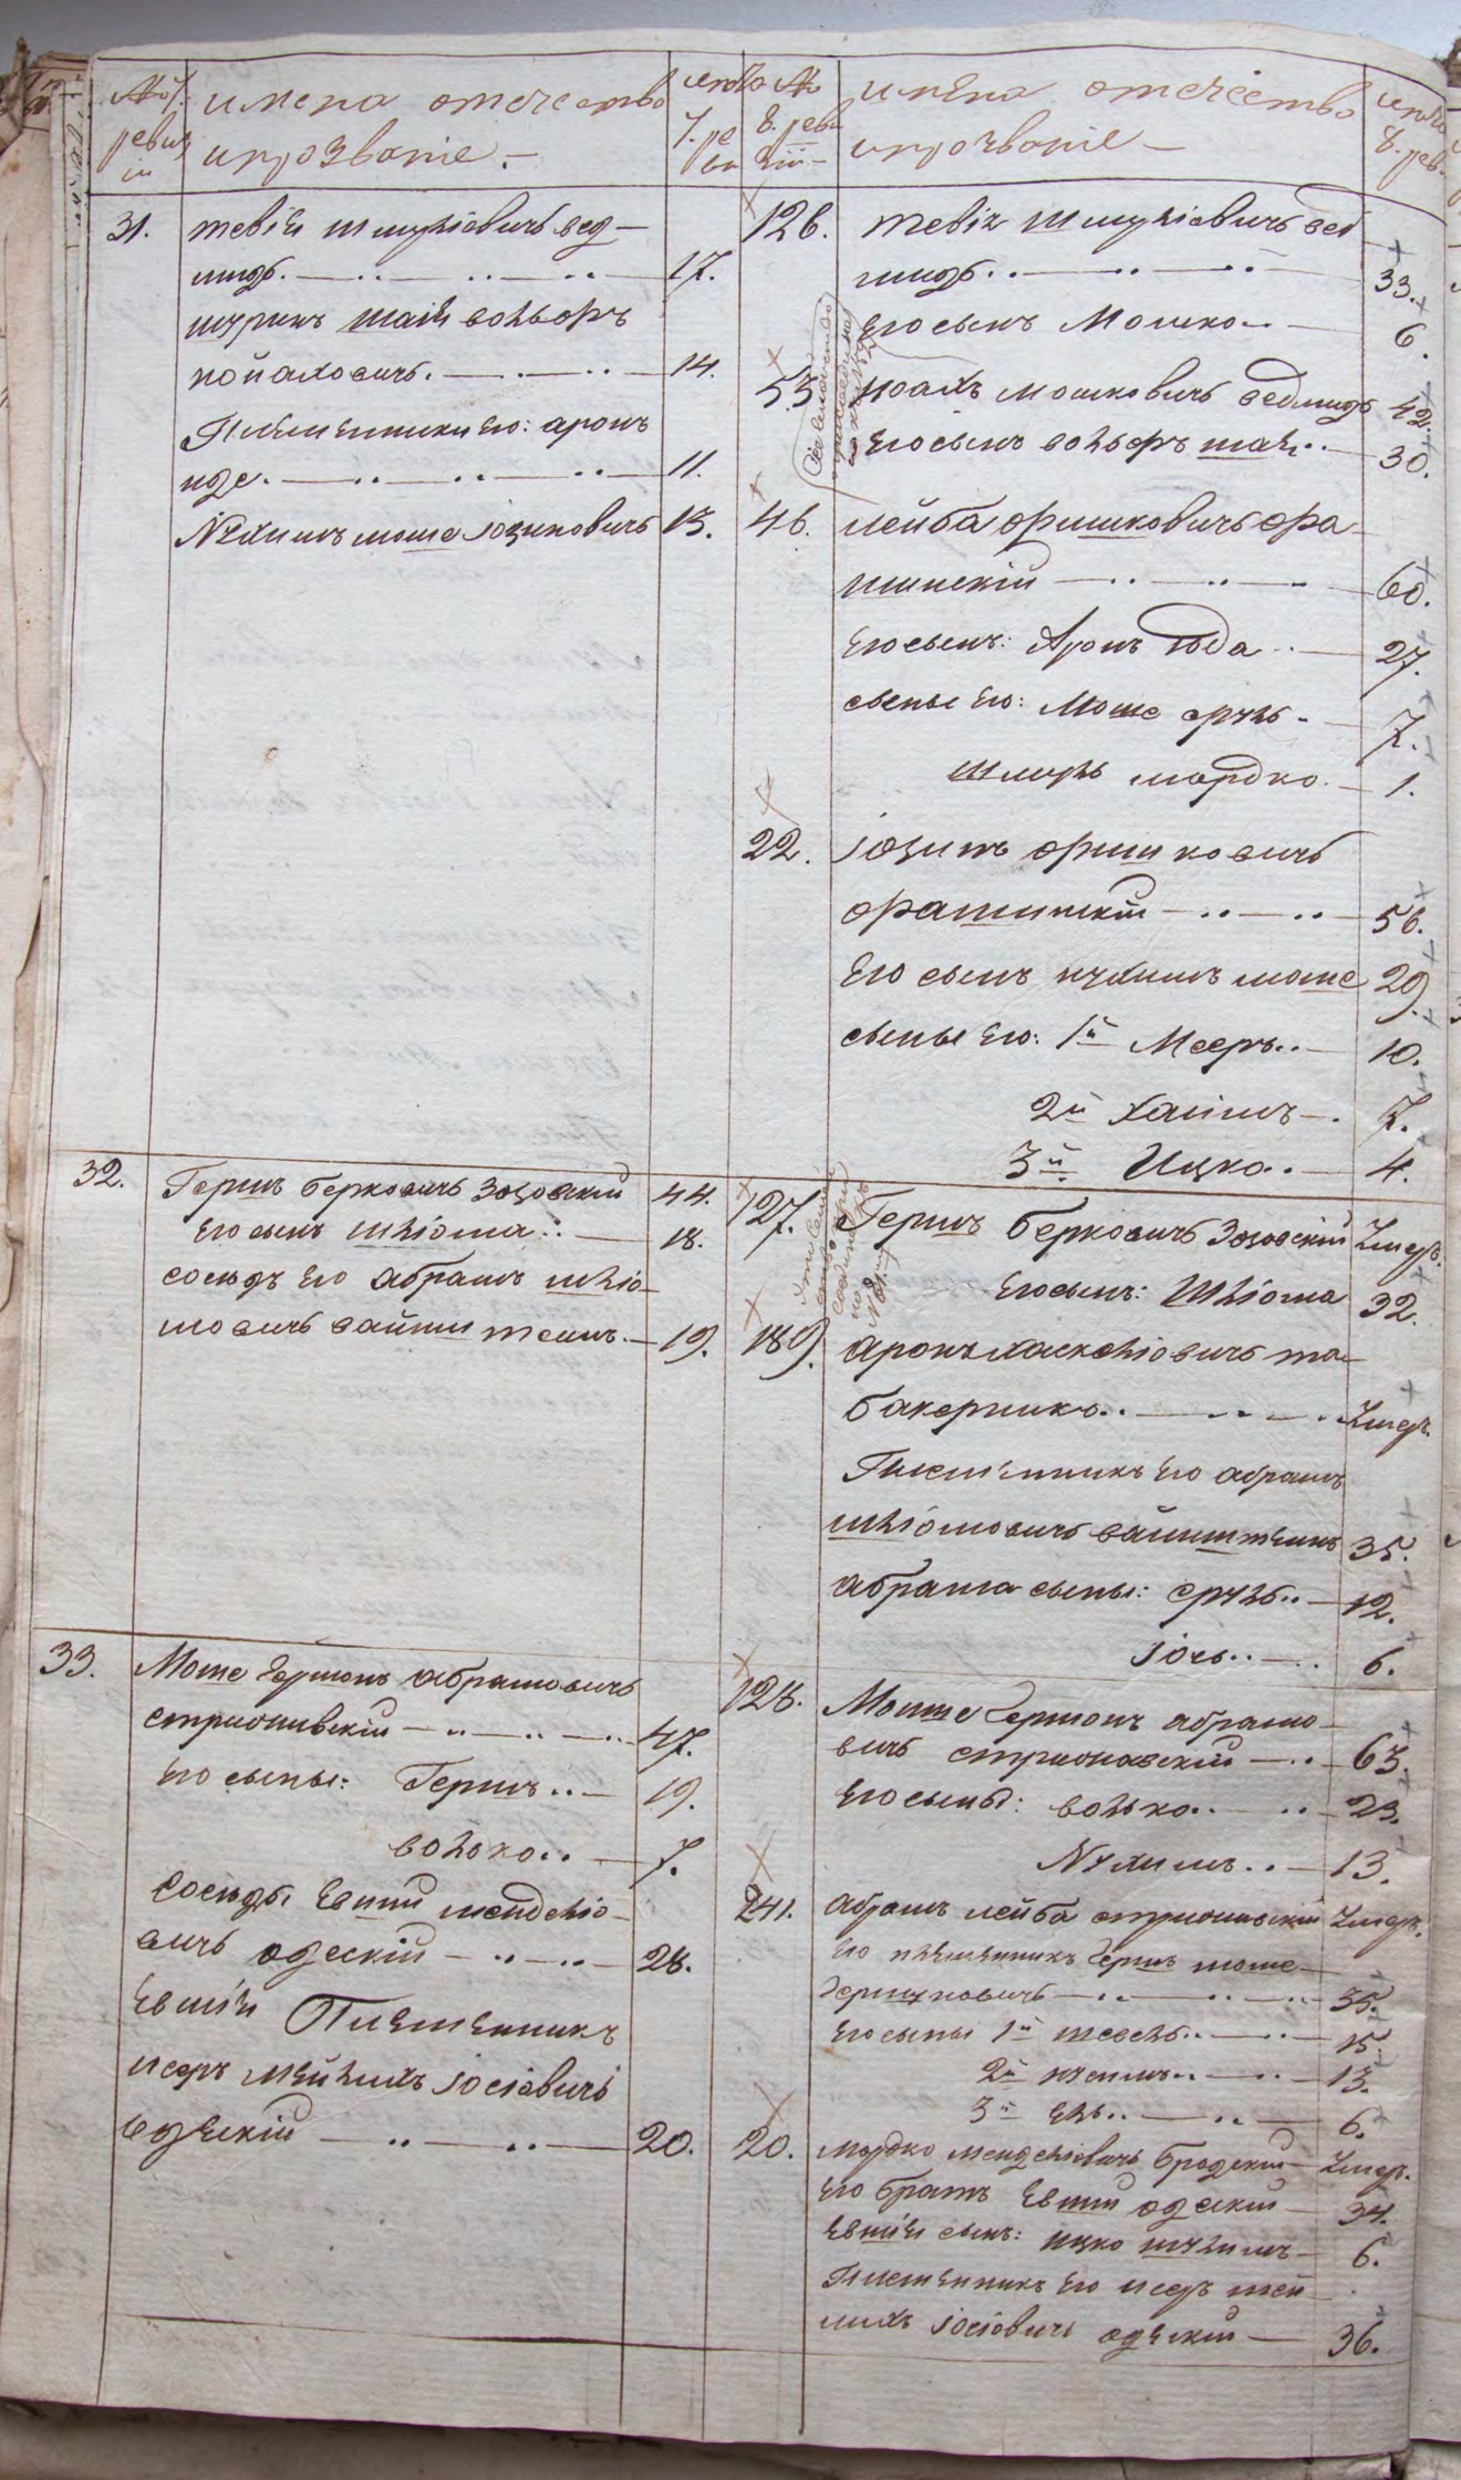 № 7. ревиз іи
имена отечество
и прозваніе. —
лета 7. ре ви
№ 8. реви зіи —
имена отечество
и прозваніе —
лета 8. рев.
31. тевія шмулiовичъ вед—
мидь. 17.
шуринъ шаія вольфъ
нойаховичъ. 14.
Племенники его: аронъ
иде. 11.
Нухимъ моше іозиповичъ 13.
126. тевія шмулiовичъ вед
мидь.. 33.
его сынъ Мошко.. 6.
53. ноахъ мошковичъ ведмидь 42.
его сынъ вольфъ шаія.. 30.
46. лейба оришковичъ ора—
шинскій 60.
его сынъ: Аронъ Юда.. 27.
сыны его: Моше сруль.. 7.
шмуль мордко. 1.
22. іозипъ оришковичъ
орашинскій 56.
Его сынъ нухимъ моше 29.
сыны его: 1й Мееръ.. 10.
2й хаимъ. 7.
3й Ицко.. 4.
32. Гершъ берковичъ Зозовскій 44.
его сынъ шліома: 18.
соседъ его абрамъ шліо—
мовичъ вайнштеинъ. 19.
127. Гершъ берковичъ Зозовскій Умеръ.
его сынъ: Шліома 32.
189. аронъ хаскеліовичъ та—
бакерникъ.. Умеръ.
Племенникъ его абрамъ
шліомовичъ вайнштеинъ 35.
абрама сыны: сруль.. 12.
іось.. 6.
33. Моше Гершонъ абрамовичъ
стрионивскій 47.
его сыны: Гершъ.. 19.
волько.. 7.
Соседы Евший менделіо—
вичъ одескій 28.
Евшія Племенникъ
исеръ мейлихъ іосіовичъ
одескій 20.
128. Моише Гершонъ абрамо—
вичъ стрионавскій 63.
Его сыны: волько.. 23.
Нухимъ.. 13.
241. абрамъ лейба стрионивскій Умеръ.
его племенникъ Гершъ моше—
Гершуновичъ 35.
его сыны 1й шевель.. 15.
2й нусимъ.. 13.
3й ель.. 6.
20. мордко менделіовичъ бродскій Умеръ.
его братъ Евший одескій 34.
Евшія сынъ: ицко шулимъ 6.
Племенникъ его исеръ мей
лихъ іосіовичъ одескій 36.